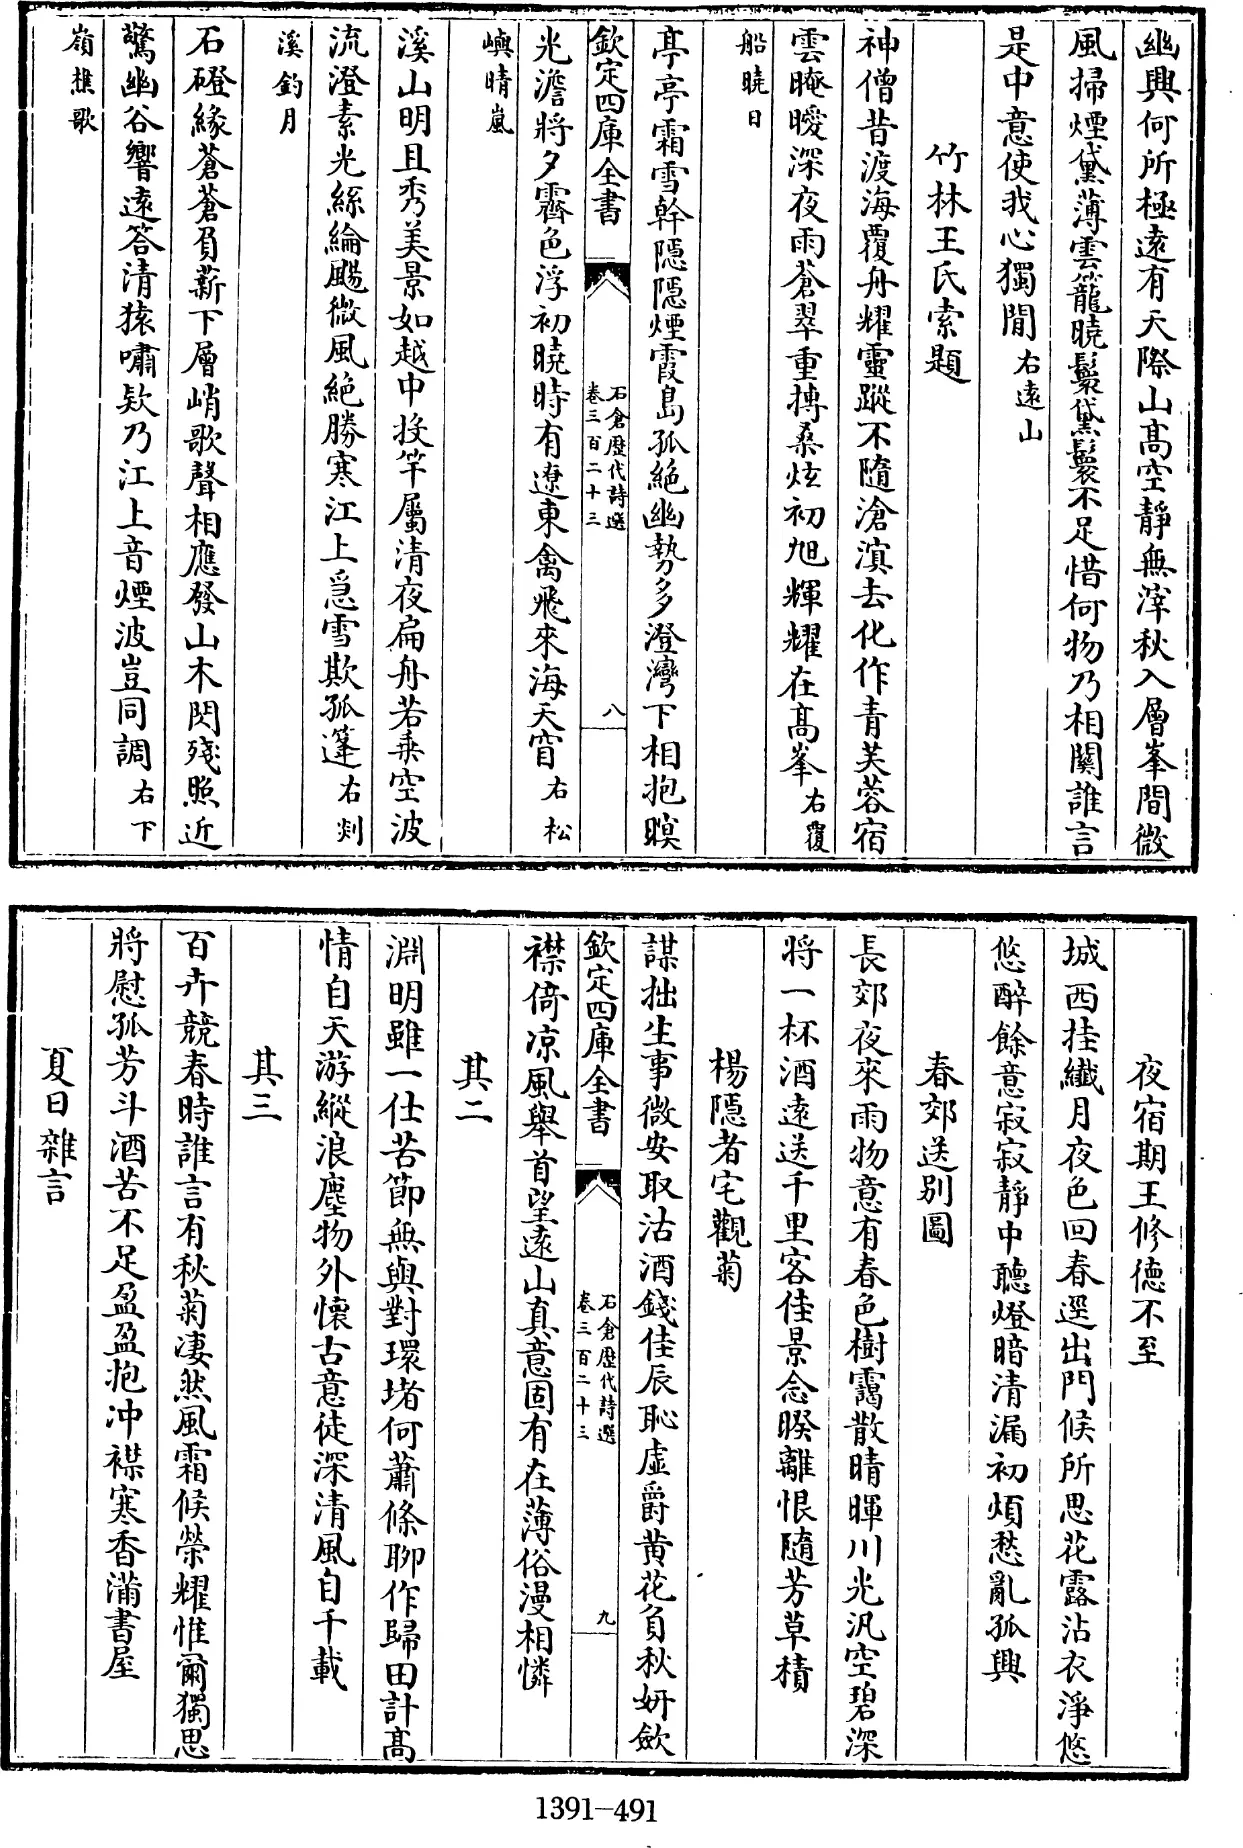 幽興何所極遠有天際山髙空靜無滓秋入層峯間微
風掃煙黛薄雲籠曉鬟黛鬟不足惜何物乃相關誰言
是中意使我心獨閒右遠山
竹林王氏索題
神僧昔渡海覆舟耀靈蹤不隨滄溟去化作青芙蓉宿
雲晻曖深夜雨蒼翠重摶桑炫初旭輝耀在髙峯右覆
船曉日
亭亭霜雪幹隠隠煙霞島孤絶幽勢多澄灣下相抱暝
欽定四庫全書
石倉歴代詩選
卷三百二十三
八
光澹將夕霽色浮初曉時有遼東禽飛來海天窅右松
嶼晴嵐
溪山明且秀美景如越中投竿屬清夜扁舟若乗空波
流澄素光絲綸颺微風絶勝寒江上急雪欺孤篷右剡
溪釣月
石磴緣蒼蒼負薪下層峭歌聲相應發山木閃殘照近
驚幽谷響遠答清猿嘯欸乃江上音煙波豈同調右下
嶺樵歌
夜宿期王修德不至
城西挂纖月夜色回春逕出門候所思花露沾衣淨悠
悠醉餘意寂寂靜中聽燈暗清漏初煩愁亂孤興
春郊送别圖
長郊夜來雨物意有春色樹靄散晴暉川光汎空碧深
将一杯酒遠送千里客佳景念睽離恨隨芳草積
楊隠者宅觀菊
謀拙生事微安取沽酒錢佳辰恥虚爵黄花負秋妍歛
欽定四庫全書
石倉歴代詩選
卷三百二十三
九
襟倚凉風舉首望遠山真意固有在薄俗漫相憐
其二
淵明雖一仕苦節無與對環堵何蕭條聊作歸田計髙
情自天游縱浪塵物外懐古意徒深清風自千載
其三
百卉競春時誰言有秋菊凄然風霜候榮耀惟爾獨思
將慰孤芳斗酒苦不足盈盈抱冲襟寒香滿書屋
夏日雜言
1391-491